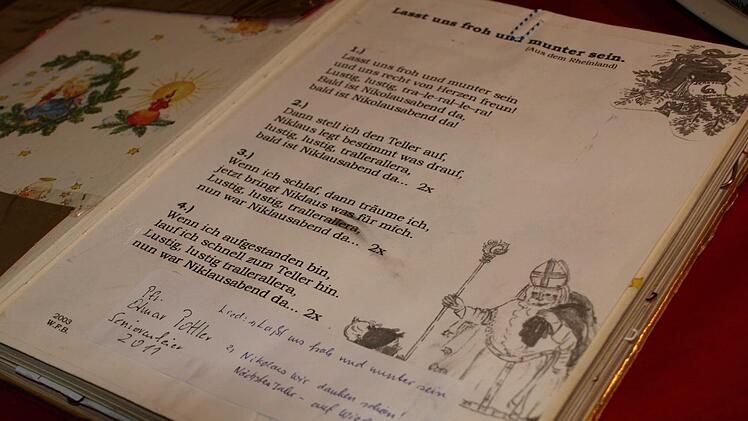 Lasst uns froh und munter sein.
(Aus dem Rheinland)
1.)
Lasst uns froh und munter sein
und uns recht von Herzen freun!
Lustig, lustig, tra-le-ral-le-ra!
Bald ist Nikolausabend da,
bald ist Nikolausabend da!
2.)
Dann stell ich den Teller auf,
Niklaus legt bestimmt was drauf,
lustig, lustig, trallerallera,
bald ist Niklausabend da... 2x
3.)
Wenn ich schlaf, dann träume ich,
jetzt bringt Niklaus was für mich.
Lustig, lustig, trallerallera,
nun war Niklausabend da... 2x
4.)
Wenn ich aufgestanden bin,
lauf ich schnell zum Teller hin.
Lustig, lustig trallerallera,
nun war Niklausabend da... 2x
2003
W.P.B.
Pfr.
Seniorenfeier
2011
uns froh und munter sein
2) Nikolaus wir danken schön!
Nächstes Jahr - auf